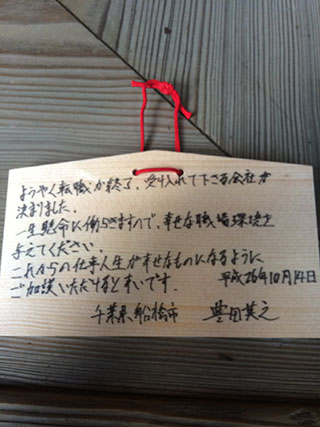 ようやく転職が終了、受け入れて下さる会社が
決まりました。
一生懸命に働らきますので、幸せな職場環境を
与えてください。
これからの仕事人生が幸せなものになるように
ご加護いただけると幸いです。
平成26年10月14日
千葉県船橋市 豊田英之